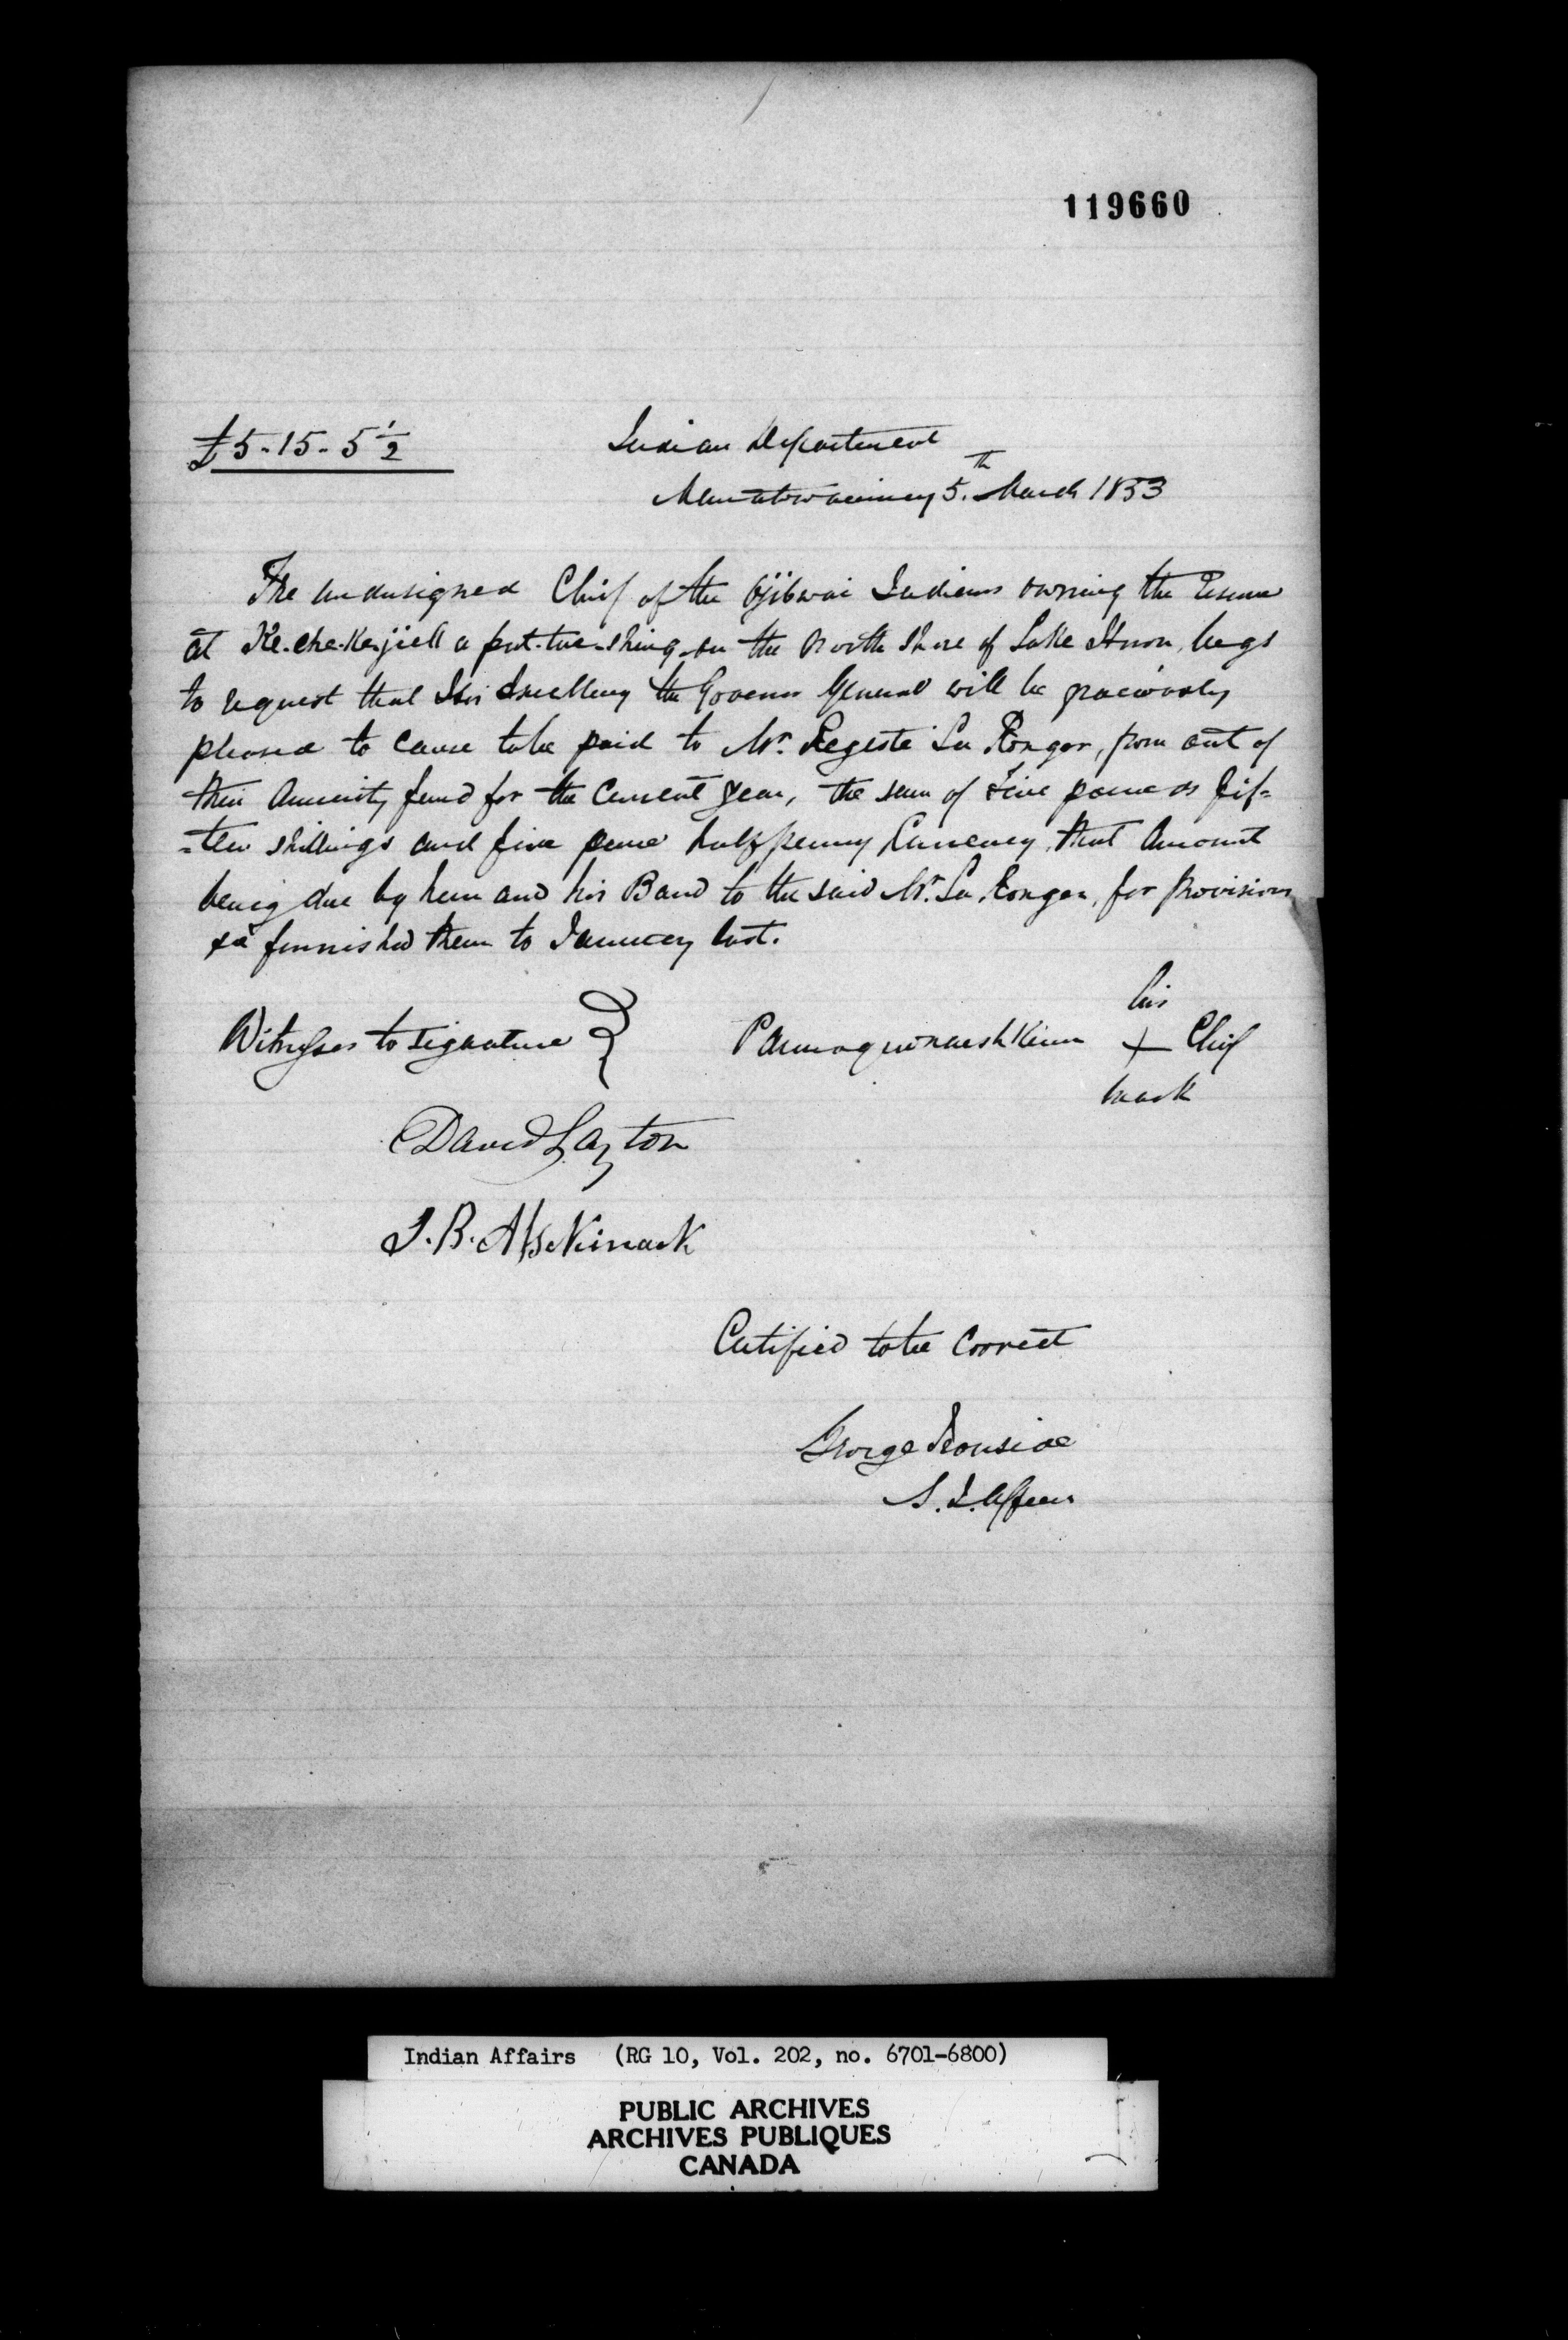 119660
£5-15-5½
Indian Department
Manatowaning 5th. March 1853
The undersigned Chief of the Ojibwai Indians owning the Reserve
at on the North Shore of Lake Huron, begs
to request that His Excellency the Governor General will be graciously
pleased to cause to be paid to Mr. Regeste La Ronger, from out of
their Annuity fund for the Current Year, the sum of Five pounds fif=
=teen shillings and five pence halfpenny Currency, that Amount
being due by him and his Band to the said Mr. La Ronger, for provisions
&a furnished them to January last.
his
Witnesses to signature } + Chief
mark
David Layton
J.B. Assekinack
Certified to be Correct
George Ironside
S.I. Affairs
Indian Affairs (RG 10, Vol. 202, no. 6701-6800)
PUBLIC ARCHIVES
ARCHIVES PUBLIQUES
CANADA